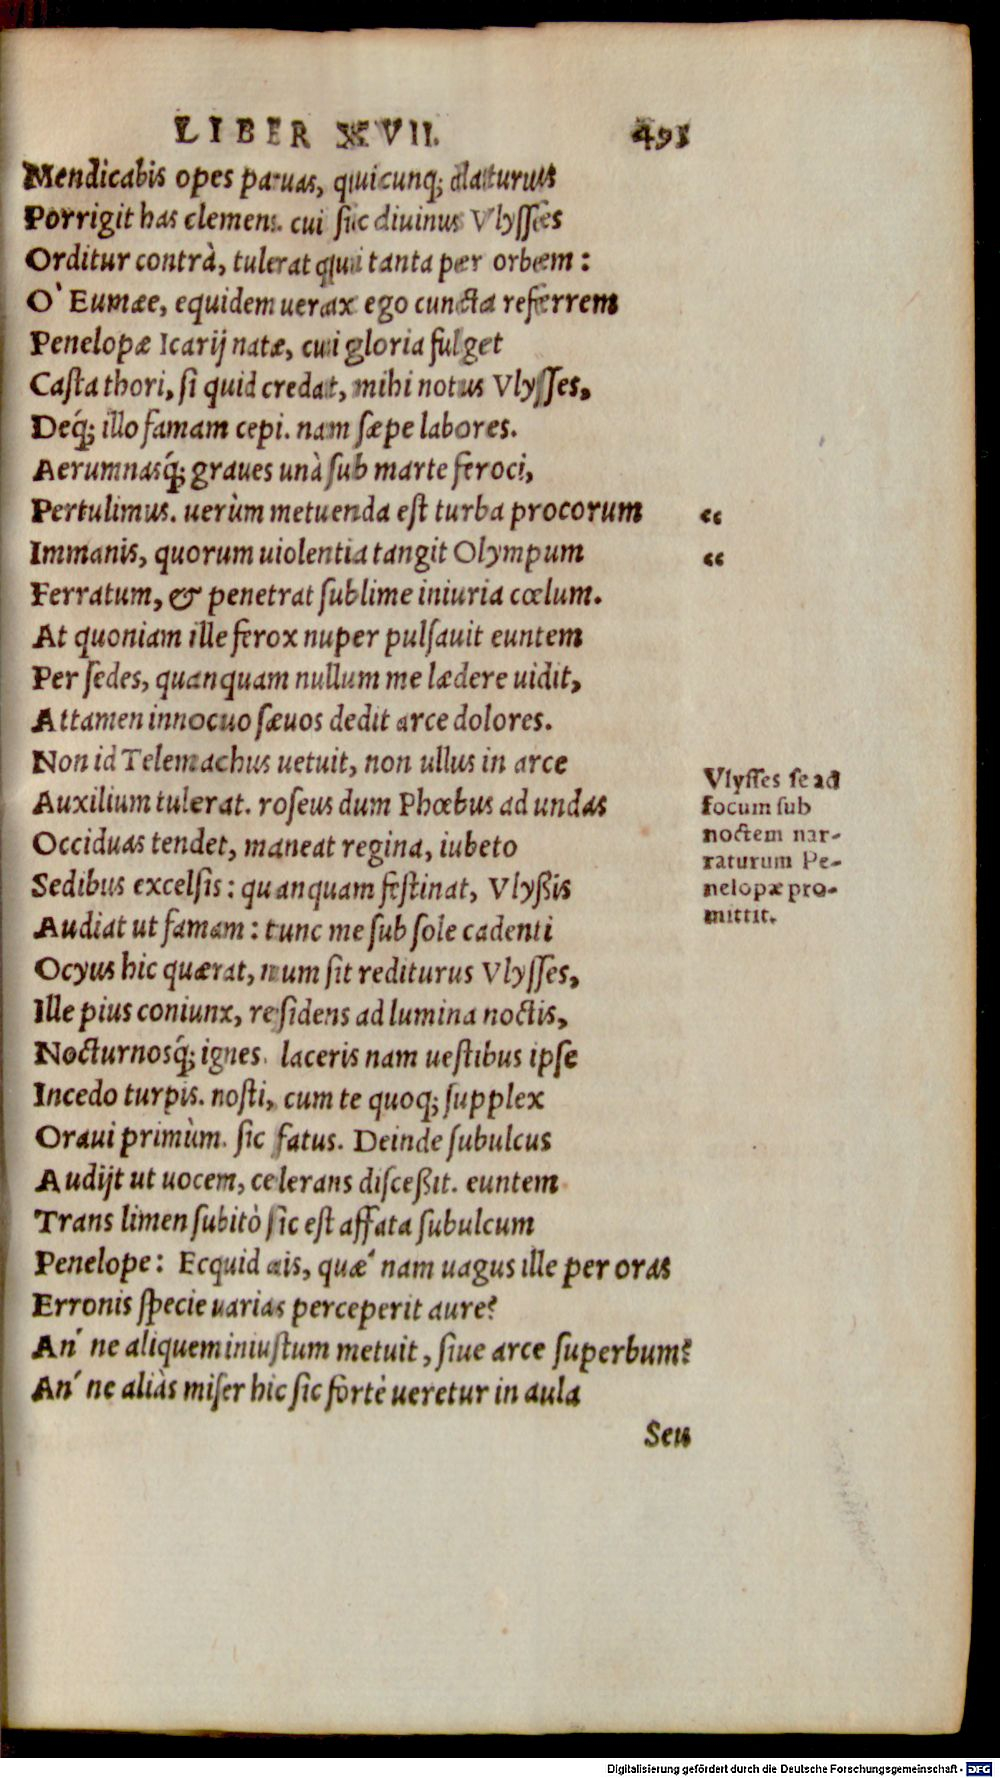 LIBER XVII. 491
Mendicabis opes paruas, quicunq; daturus
Porrigit has clemens. cui sic diuinus Vlysses
Orditur contrà, tulerat qui tanta per orbem:
O` Eumæe, equidem uerax ego cuncta referrem
Penelopæ Icarij natæ, cui gloria fulget
Casta thori, si quid credat, mihi notus Vlysses,
Deq́; illo famam cepi. nam sæpe labores.
Aerumnasq́; graues unà sub marte feroci,
Pertulimus. uerùm metuenda est turba procorum “
Immanis, quorum uiolentia tangit Olympum “
Ferratum, & penetrat sublime iniuria cœlum.
At quoniam ille ferox nuper pulsauit euntem
Per sedes, quanquam nullum me lædere uidit,
Attamen innocuo sæuos dedit arce dolores.
Non id Telemachus uetuit, non ullus in arce
Auxilium tulerat. roseus dum Phœbus ad undas
Occiduas tendet, maneat regina, iubeto
Sedibus excelsis: quanquam festinat, Vlyßis
Audiat ut famam: tunc me sub sole cadenti
Ocyus hic quærat, num sit rediturus Vlysses,
Ille pius coniunx, residens ad lumina noctis,
Nocturnosq́; ignes. laceris nam uestibus ipse
Incedo turpis. nosti, cum te quoq; supplex
Oraui primùm. sic fatus. Deinde subulcus
Audijt ut uocem, celerans disceßit. euntem
Trans limen subitò sic est affata subulcum
Penelope: Ecquid ais, quæ´ nam uagus ille per oras
Erronis specie uarias perceperit aure?
An´ ne aliquem iniustum metuit, siue arce superbum?
An´ ne aliàs miser hic sic fortè ueretur in aula
Seu
Vlysses se ad
focum sub
noctem nar-
raturum Pe-
nelopæ pro-
mittit.
Digitalisierung gefördert durch die Deutsche Forschungsgemeinschaft - DFG